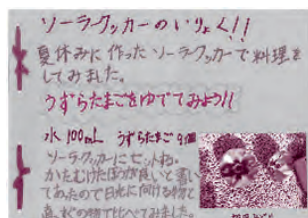 ソーラークッカーのいりょく!!
夏休みに作ったソーラークッカーで料理を
してみました。
うずらたまごをゆでてみよう!!
水 100mL うずらたまご 9個
ソーラクッカーにセットする。
かたむけたほうが良いと書い
てあったので日光に向ける物と
真 の物で比べてみました。